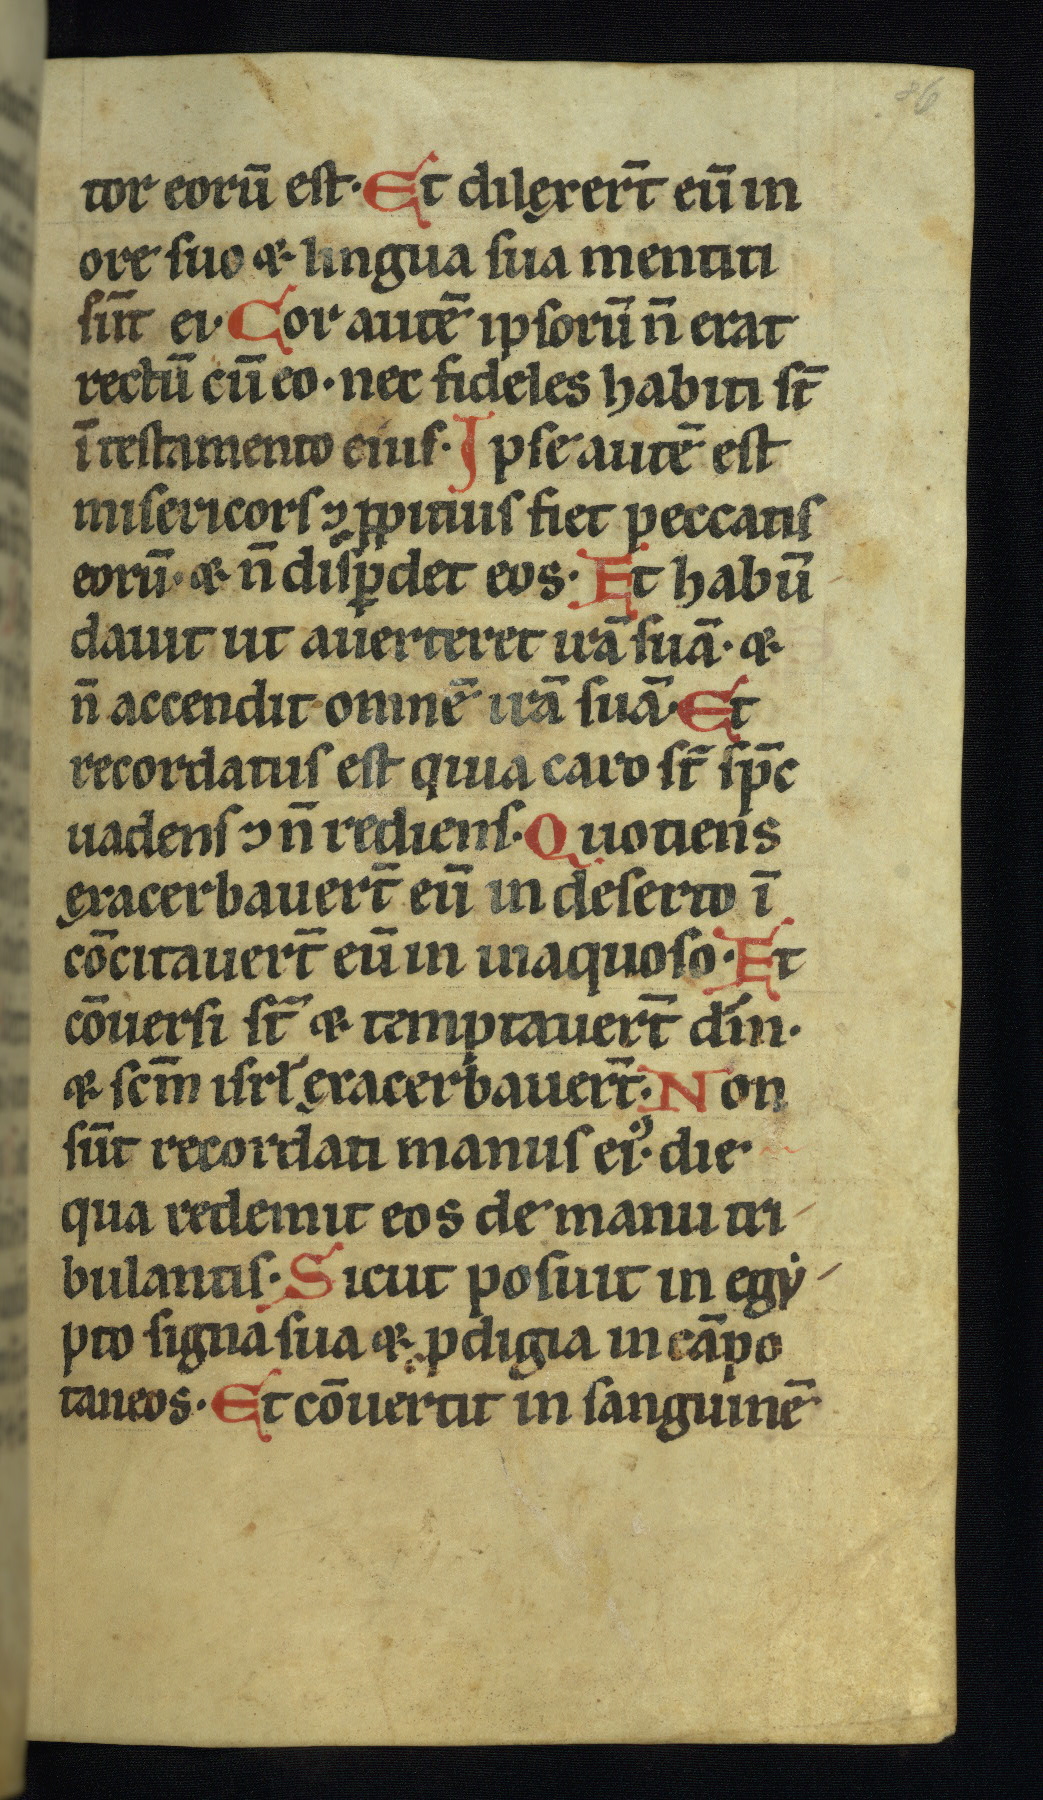 86
tor eorū est· Et dilexer̄t eū in
ore suo & lingua sua mentiti
sūt ei· Cor autē ipsorū n̄ erat
rectū cū eo· nec fideles habiti st̄
ī testamento eius· Ipse autē est
misericors ⁊ ꝓpitius fiet peccatis
eorū· & n̄ disꝑdet eos· Et habū
dauit ut auerteret irā suā· &
n̄ accendit omnē irā suā· Et
recordatus est quia caro st̄ sp̄c
uadens ⁊ n̄ rediens· Quotiens
exacerbauer̄t eū in deserto ī
cōcitauer̄t eū in inaquoso· Et
cōuersi st̄ & temptauer̄t dm̄·
& scm̄ isrl̄ exacerbauer̄t· Non
sūt recordati manus eiꝰ· die
qua redemit eos de manu tri
bulantis· Sicut posuit in egẏ
pto signa sua & ꝓdigia in cāpo
taneos· Et cōuertit in sanguinē